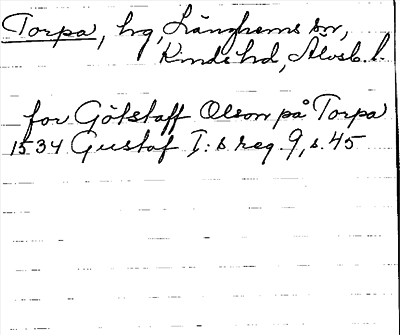 Torpa, hg, Länghems sn,
Kinds hd, Älvsb. l.
for Götstaff Olson på Torpa
1534 Gustaf I:s reg. 9, s. 45